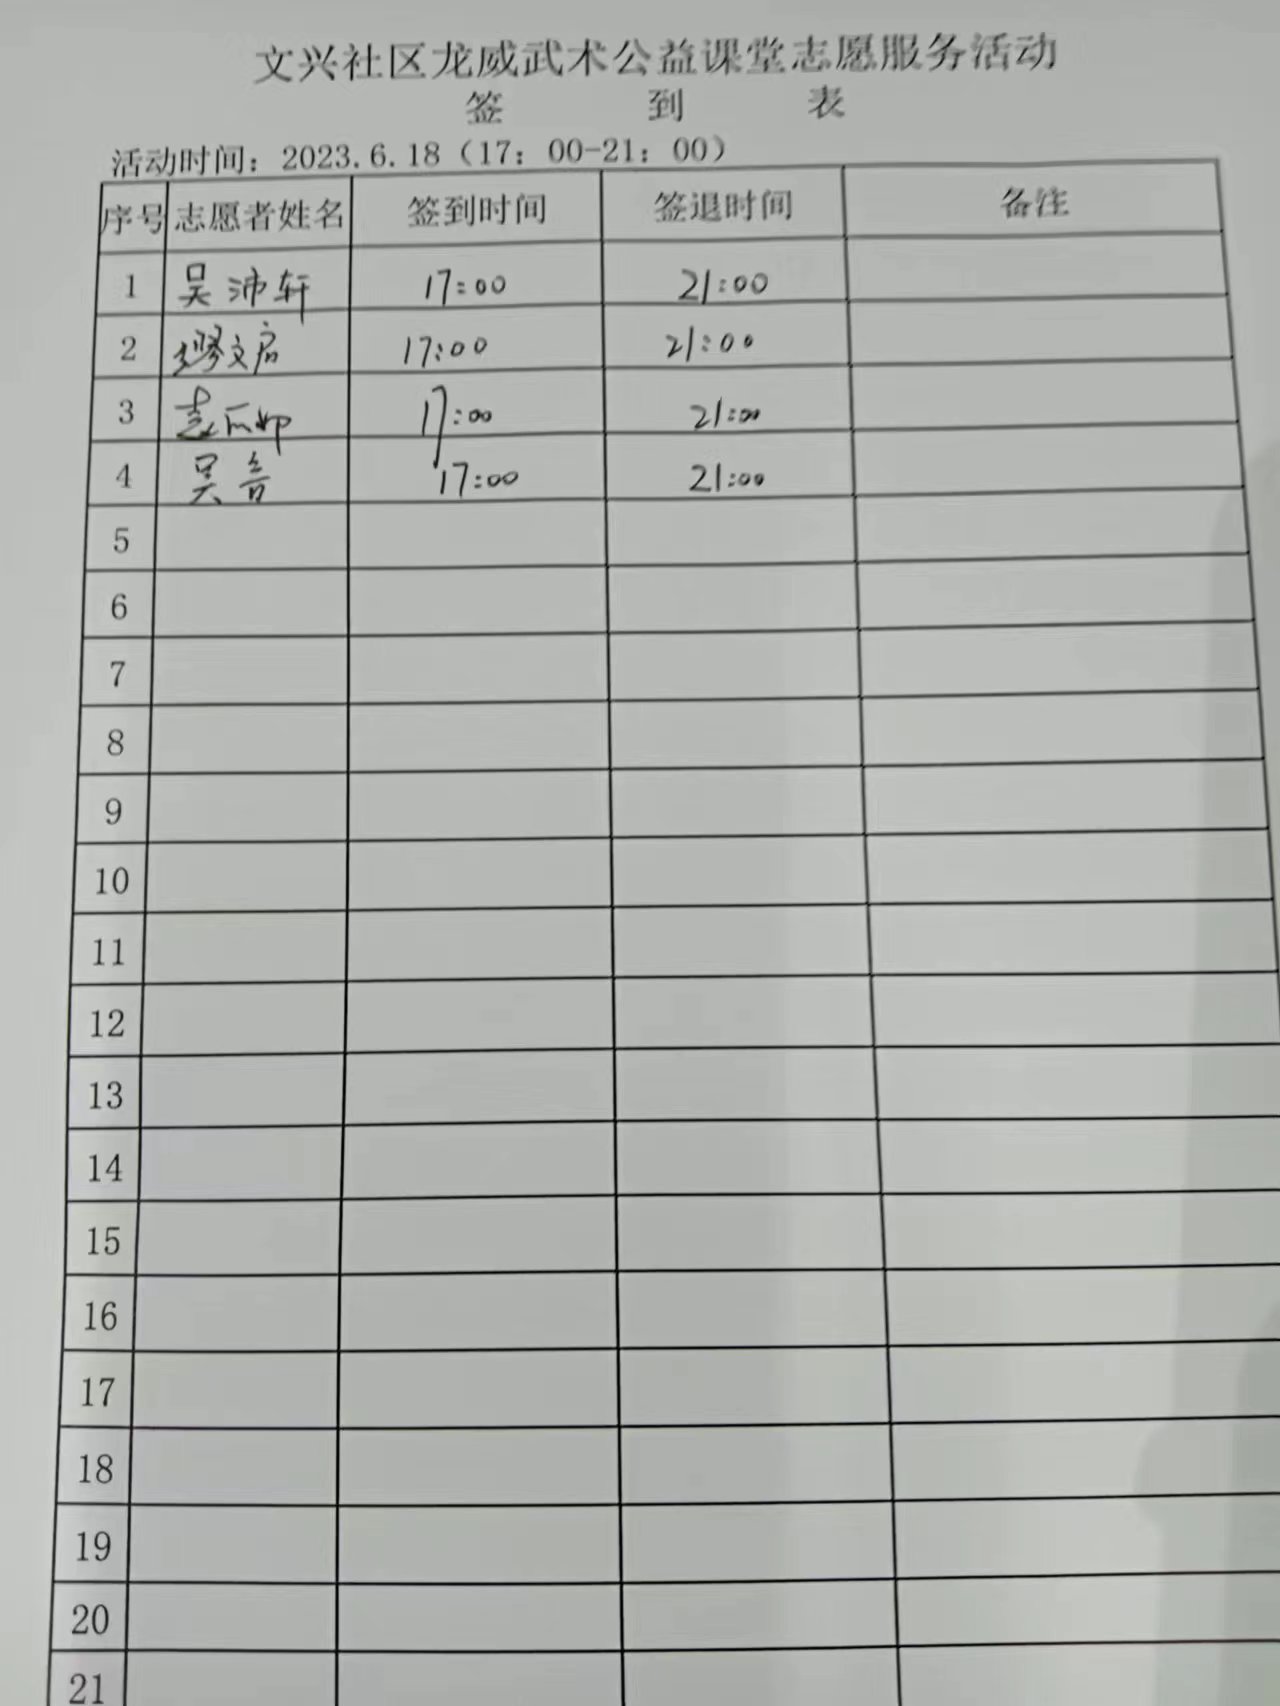 文兴社区龙威武术公益课堂志愿服务活动
签 到 表
活动时间：2023.6.18（17：00-21：00）
序号 志愿者姓名 签到时间 签退时间 备注
1 吴沛轩 17:00 21:00
2 缪文启 17:00 21:00
3 17:00 21:00
4 吴 17:00 21:00
5
6
7
8
9
10
11
12
13
14
15
16
17
18
19
20
21